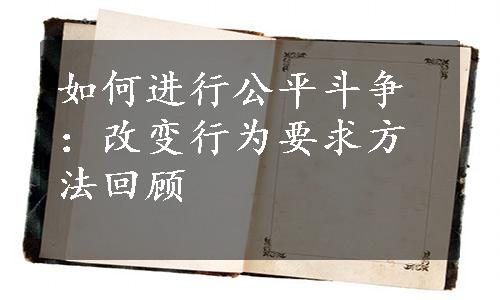 如何进行公平斗争
：改变行为要求方
法回顾